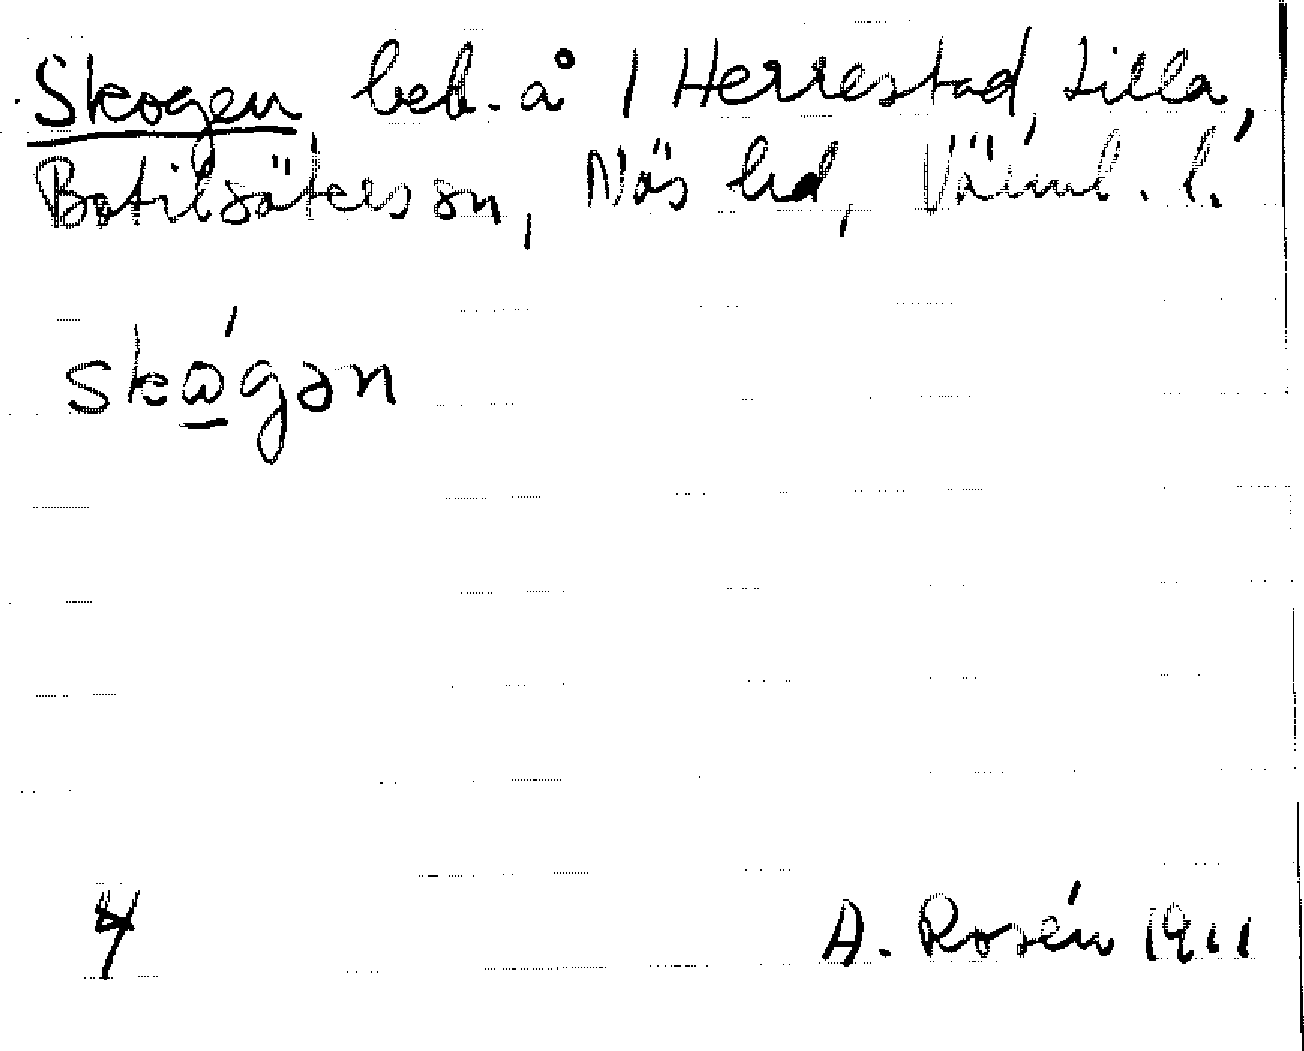 Skogen, beb. å 1 Herrestad, Lilla,
Botilsäters sn, Näs hd, Värml. l.
skógən
4 A. Rosén 1911